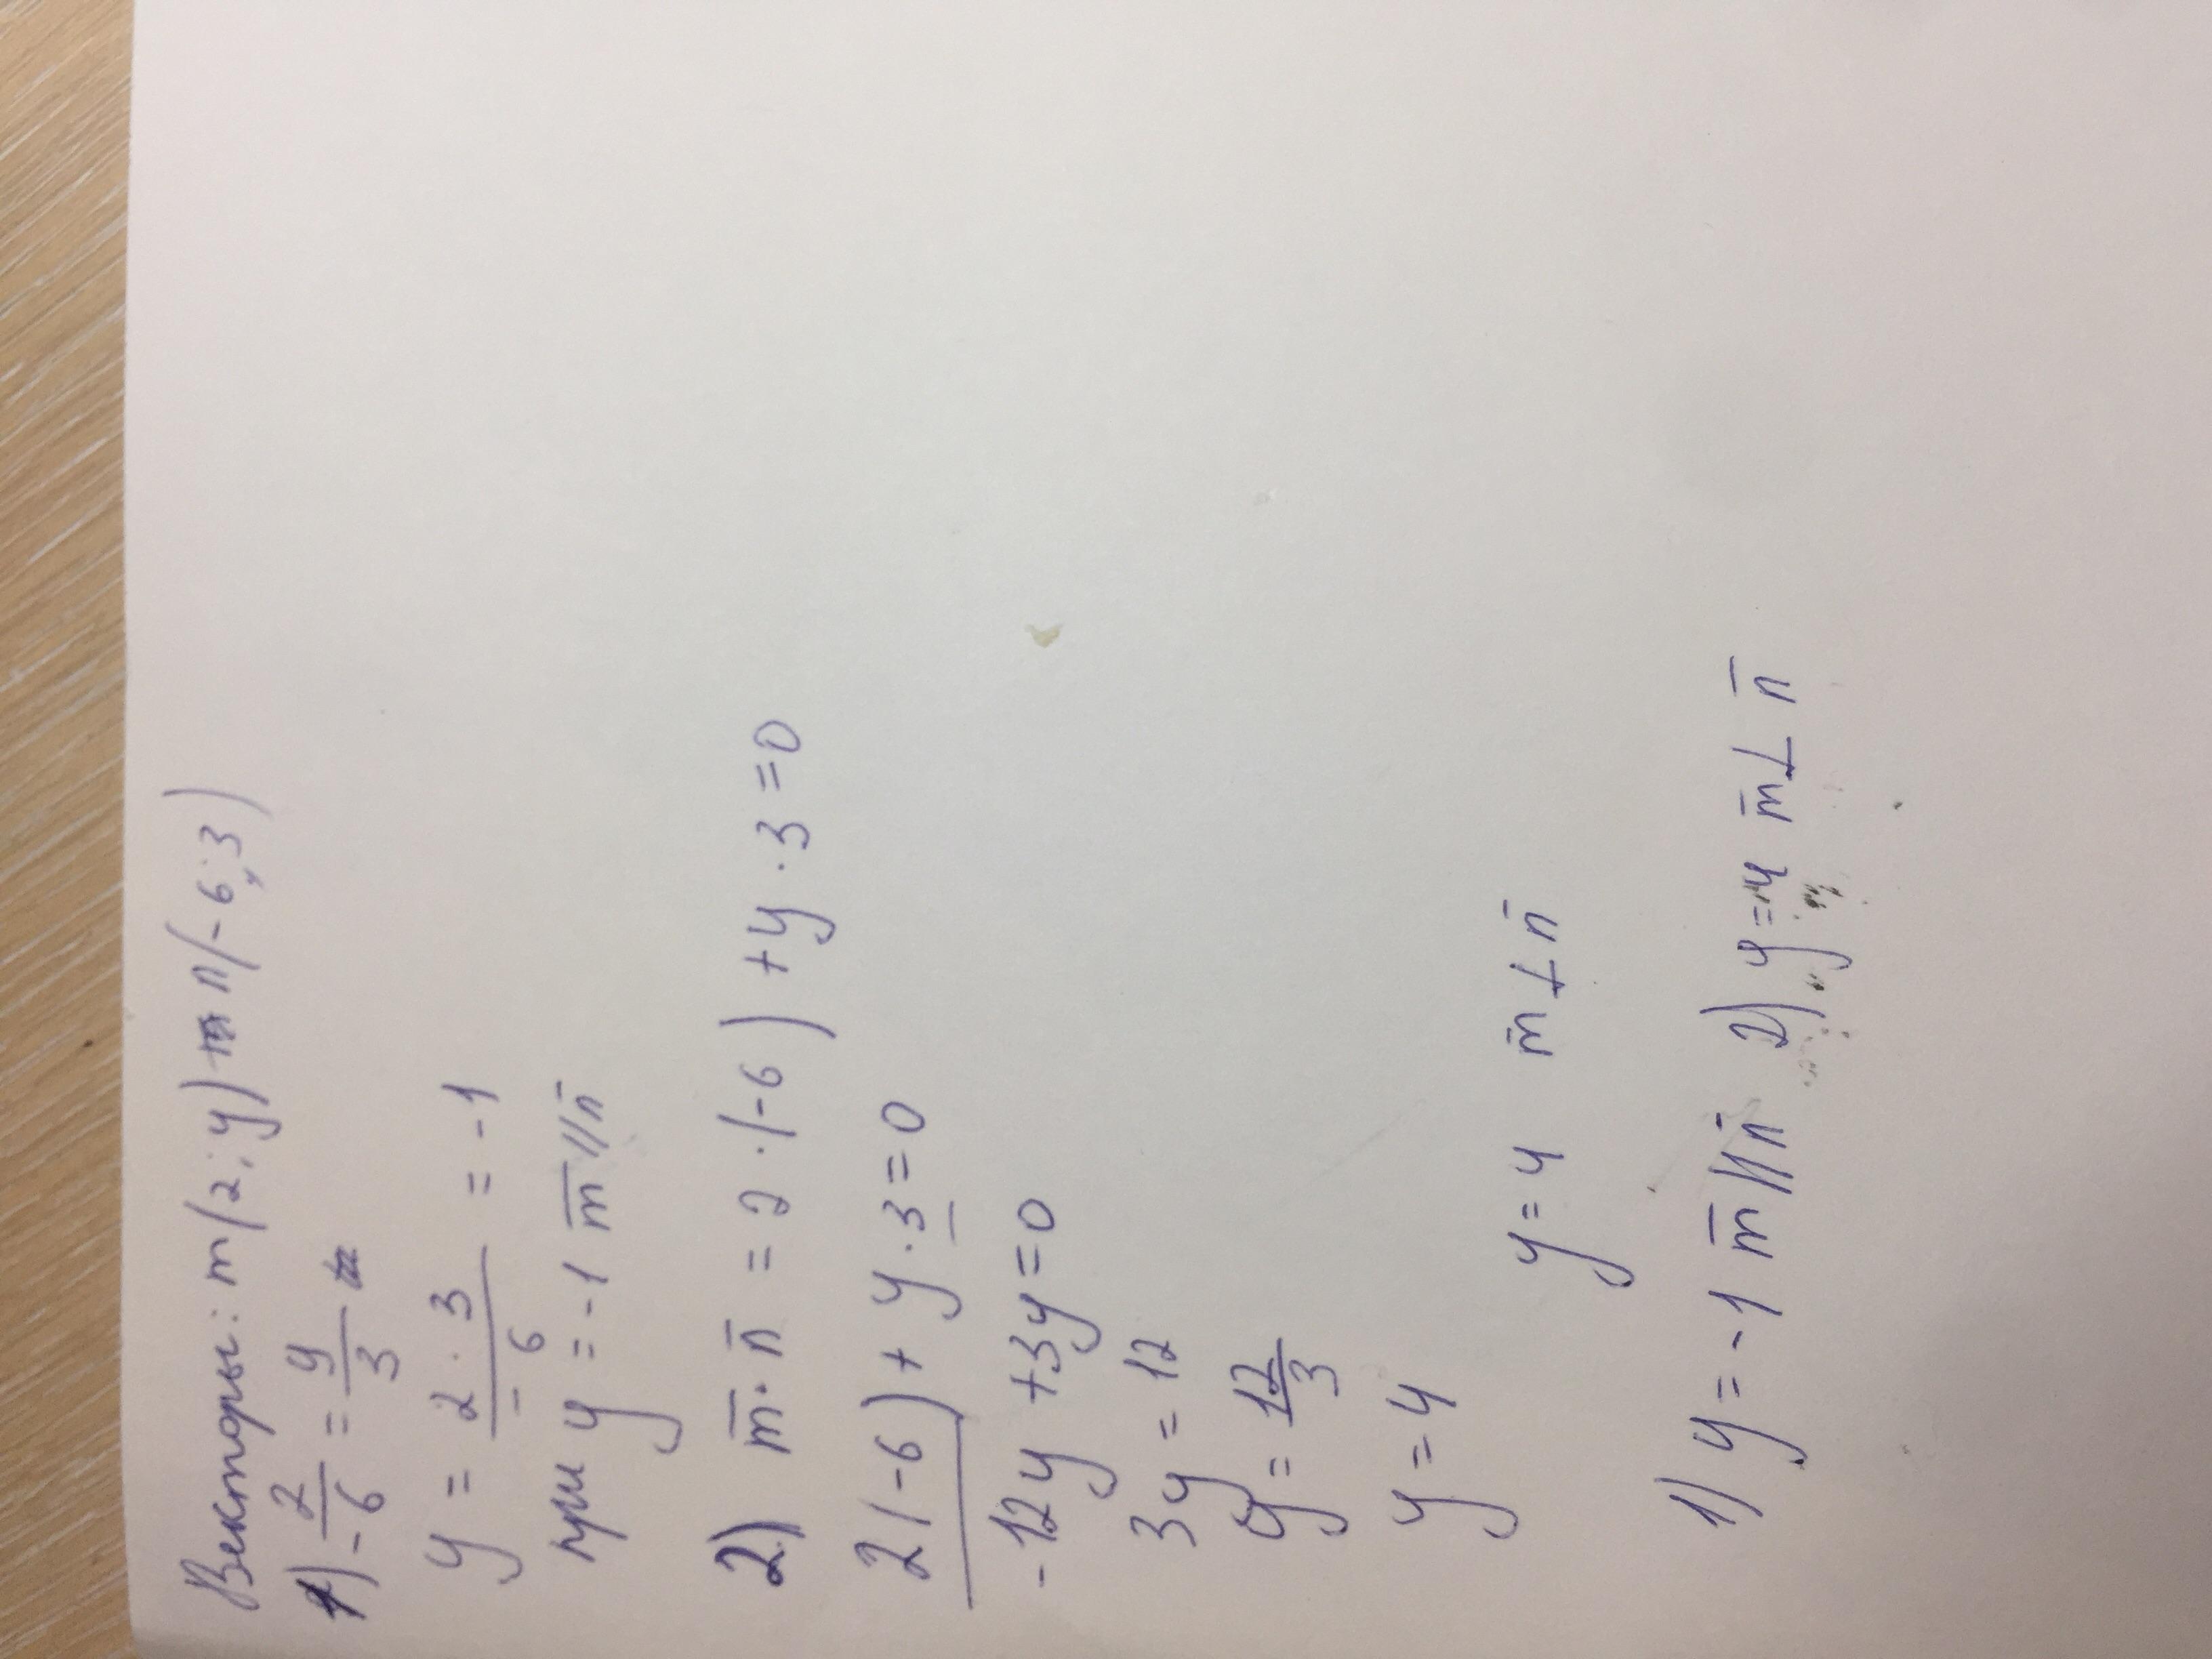 Векторы: m(2; y) n(-6; 3)
1) 2/-6 = y/3
y = 2·3/-6 = -1
при y = -1 m̅ || n̅
2) m̅·n̅ = 2·(-6) + y·3 = 0
2(-6) + y·3 = 0
-12y + 3y = 0
3y = 12
y = 12/3
y = 4
y = 4 m̅ ⊥ n̅
1) y = -1 m̅ || n̅ 2) y = 4 m̅ ⊥ n̅